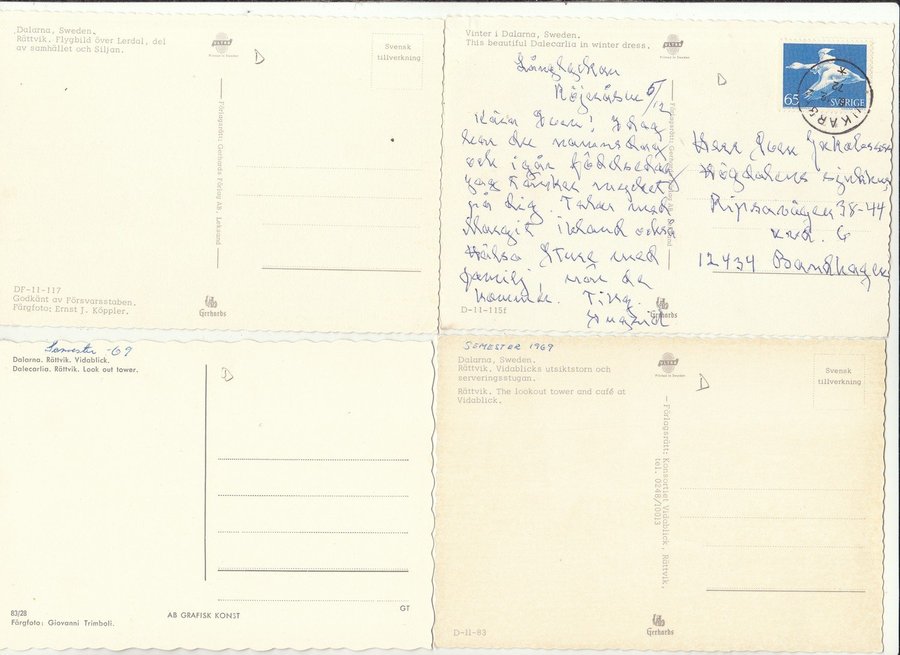 Dalarna, Sweden.
Rättvik. Flygbild över Lerdal, del
av samhället och Siljan.
ULTRA
Printed in Sweden
D
Svensk
tillverkning
Förlagsrätt: Gerhards Förlag AB, Leksand
DF-11-117
Godkänt av Försvarsstaben.
Färgfoto: Ernst J. Köppler.
Gerhards
Vinter i Dalarna, Sweden.
This beautiful Dalecarlia in winter dress.
ULTRA
Printed in Sweden
D
65 SVERIGE
72
5/12
Kära Sven! Idag
har du namnsdag
och igår födelsedag
jag tänker mycket
på dig. Talar med
Margit ibland också
Hälsa Sture med
familj, när de
kommer.
Ingrid
Herr Sven
Högdalens sjukhus
Ripsavägen 38-44
avd. 6
12434 Bandhagen
D-11-115f
Gerhards
Semester -69
Dalarna. Rättvik. Vidablick.
Dalecarlia. Rättvik. Look out tower.
D
83/28
Färgfoto: Giovanni Trimboli.
AB GRAFISK KONST
GT
SEMESTER 1969
Dalarna, Sweden.
Rättvik. Vidablicks utsiktstorn och
serveringsstugan.
Rättvik. The lookout tower and café at
Vidablick.
ULTRA
Printed in Sweden
D
Svensk
tillverkning
Förlagsrätt: Konsortiet Vidablick, Rättvik,
tel. 0248/10013
D-11-83
Gerhards